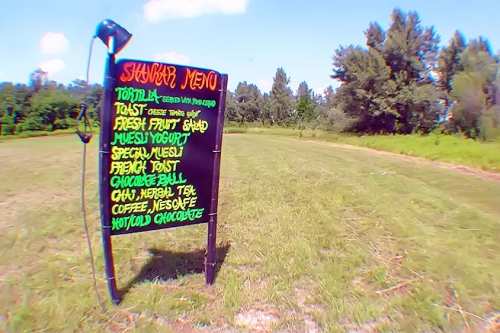 SHANKAR MENU
TORTILLA SERVED WITH
TOAST CHEESE TOMATO
FRESH FRUIT SALAD
MUESLI YOGURT
SPECIAL MUESLI
FRENCH TOAST
CHOCOLATE BALL
CHAI, HERBAL TEA
COFFEE, NESCAFE
HOT/COLD CHOCOLATE